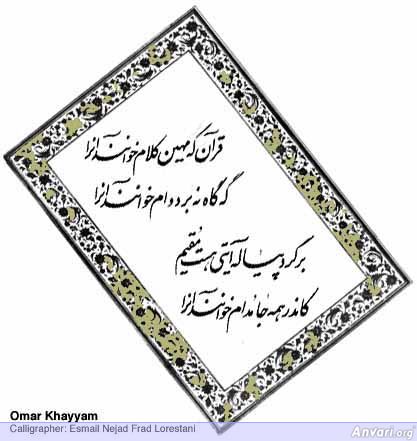 قرآن که مهین کلام خوانند آنرا
گه گاه نه بر دوام خوانند آنرا
بر گرد پیاله آیتی هست مقیم
کاندر همه جا مدام خوانند آنرا
Omar Khayyam
Calligrapher: Esmail Nejad Frad Lorestani
Anvari.org